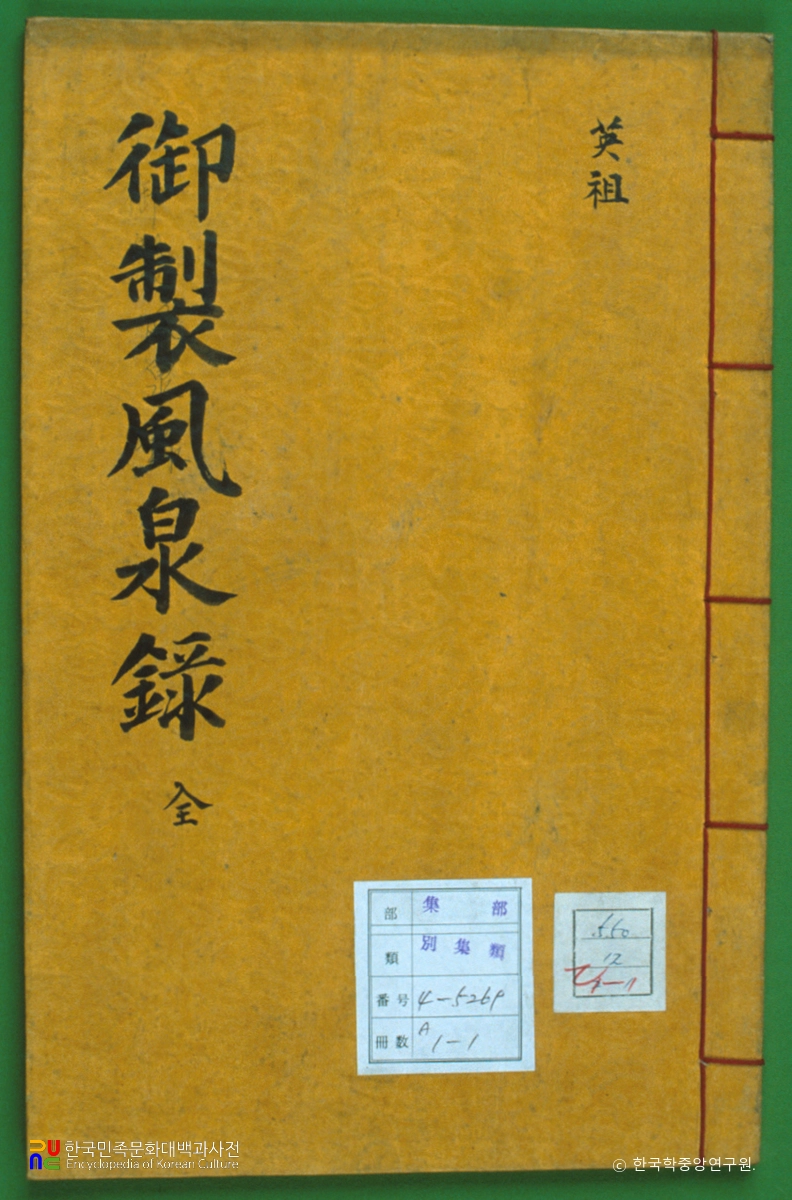 英祖
御製風泉錄 全
部 集部
類 別集類
番号 4-5269
冊数 A 1-1
550
12
한국민족문화대백과사전
Encyclopedia of Korean Culture
ⓒ 한국학중앙연구원.